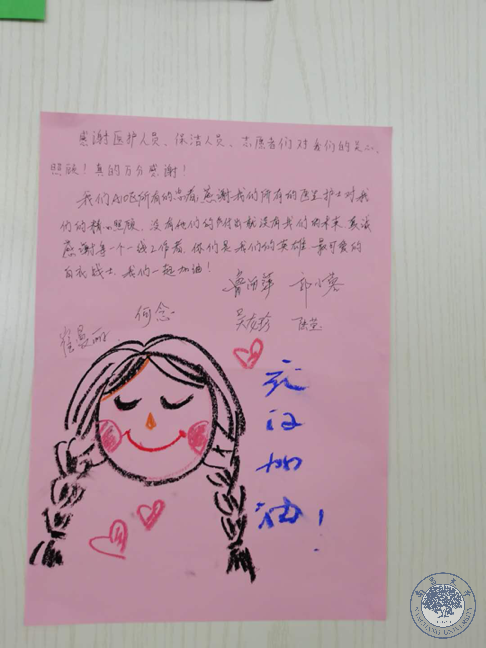 感谢医护人员、保洁人员、志愿者们对我们的关心、
照顾！真的万分感谢！
我们A区所有的患者，感谢我们所有的医生护士对我
们的精心照顾，没有他们的付出就没有我们的未来，真诚
感谢每个一线工作者，你们是我们的英雄，最可爱的
白衣战士，我们一起加油！
何念
武汉加油！
南昌大学
NANCHANG UNIVERSITY